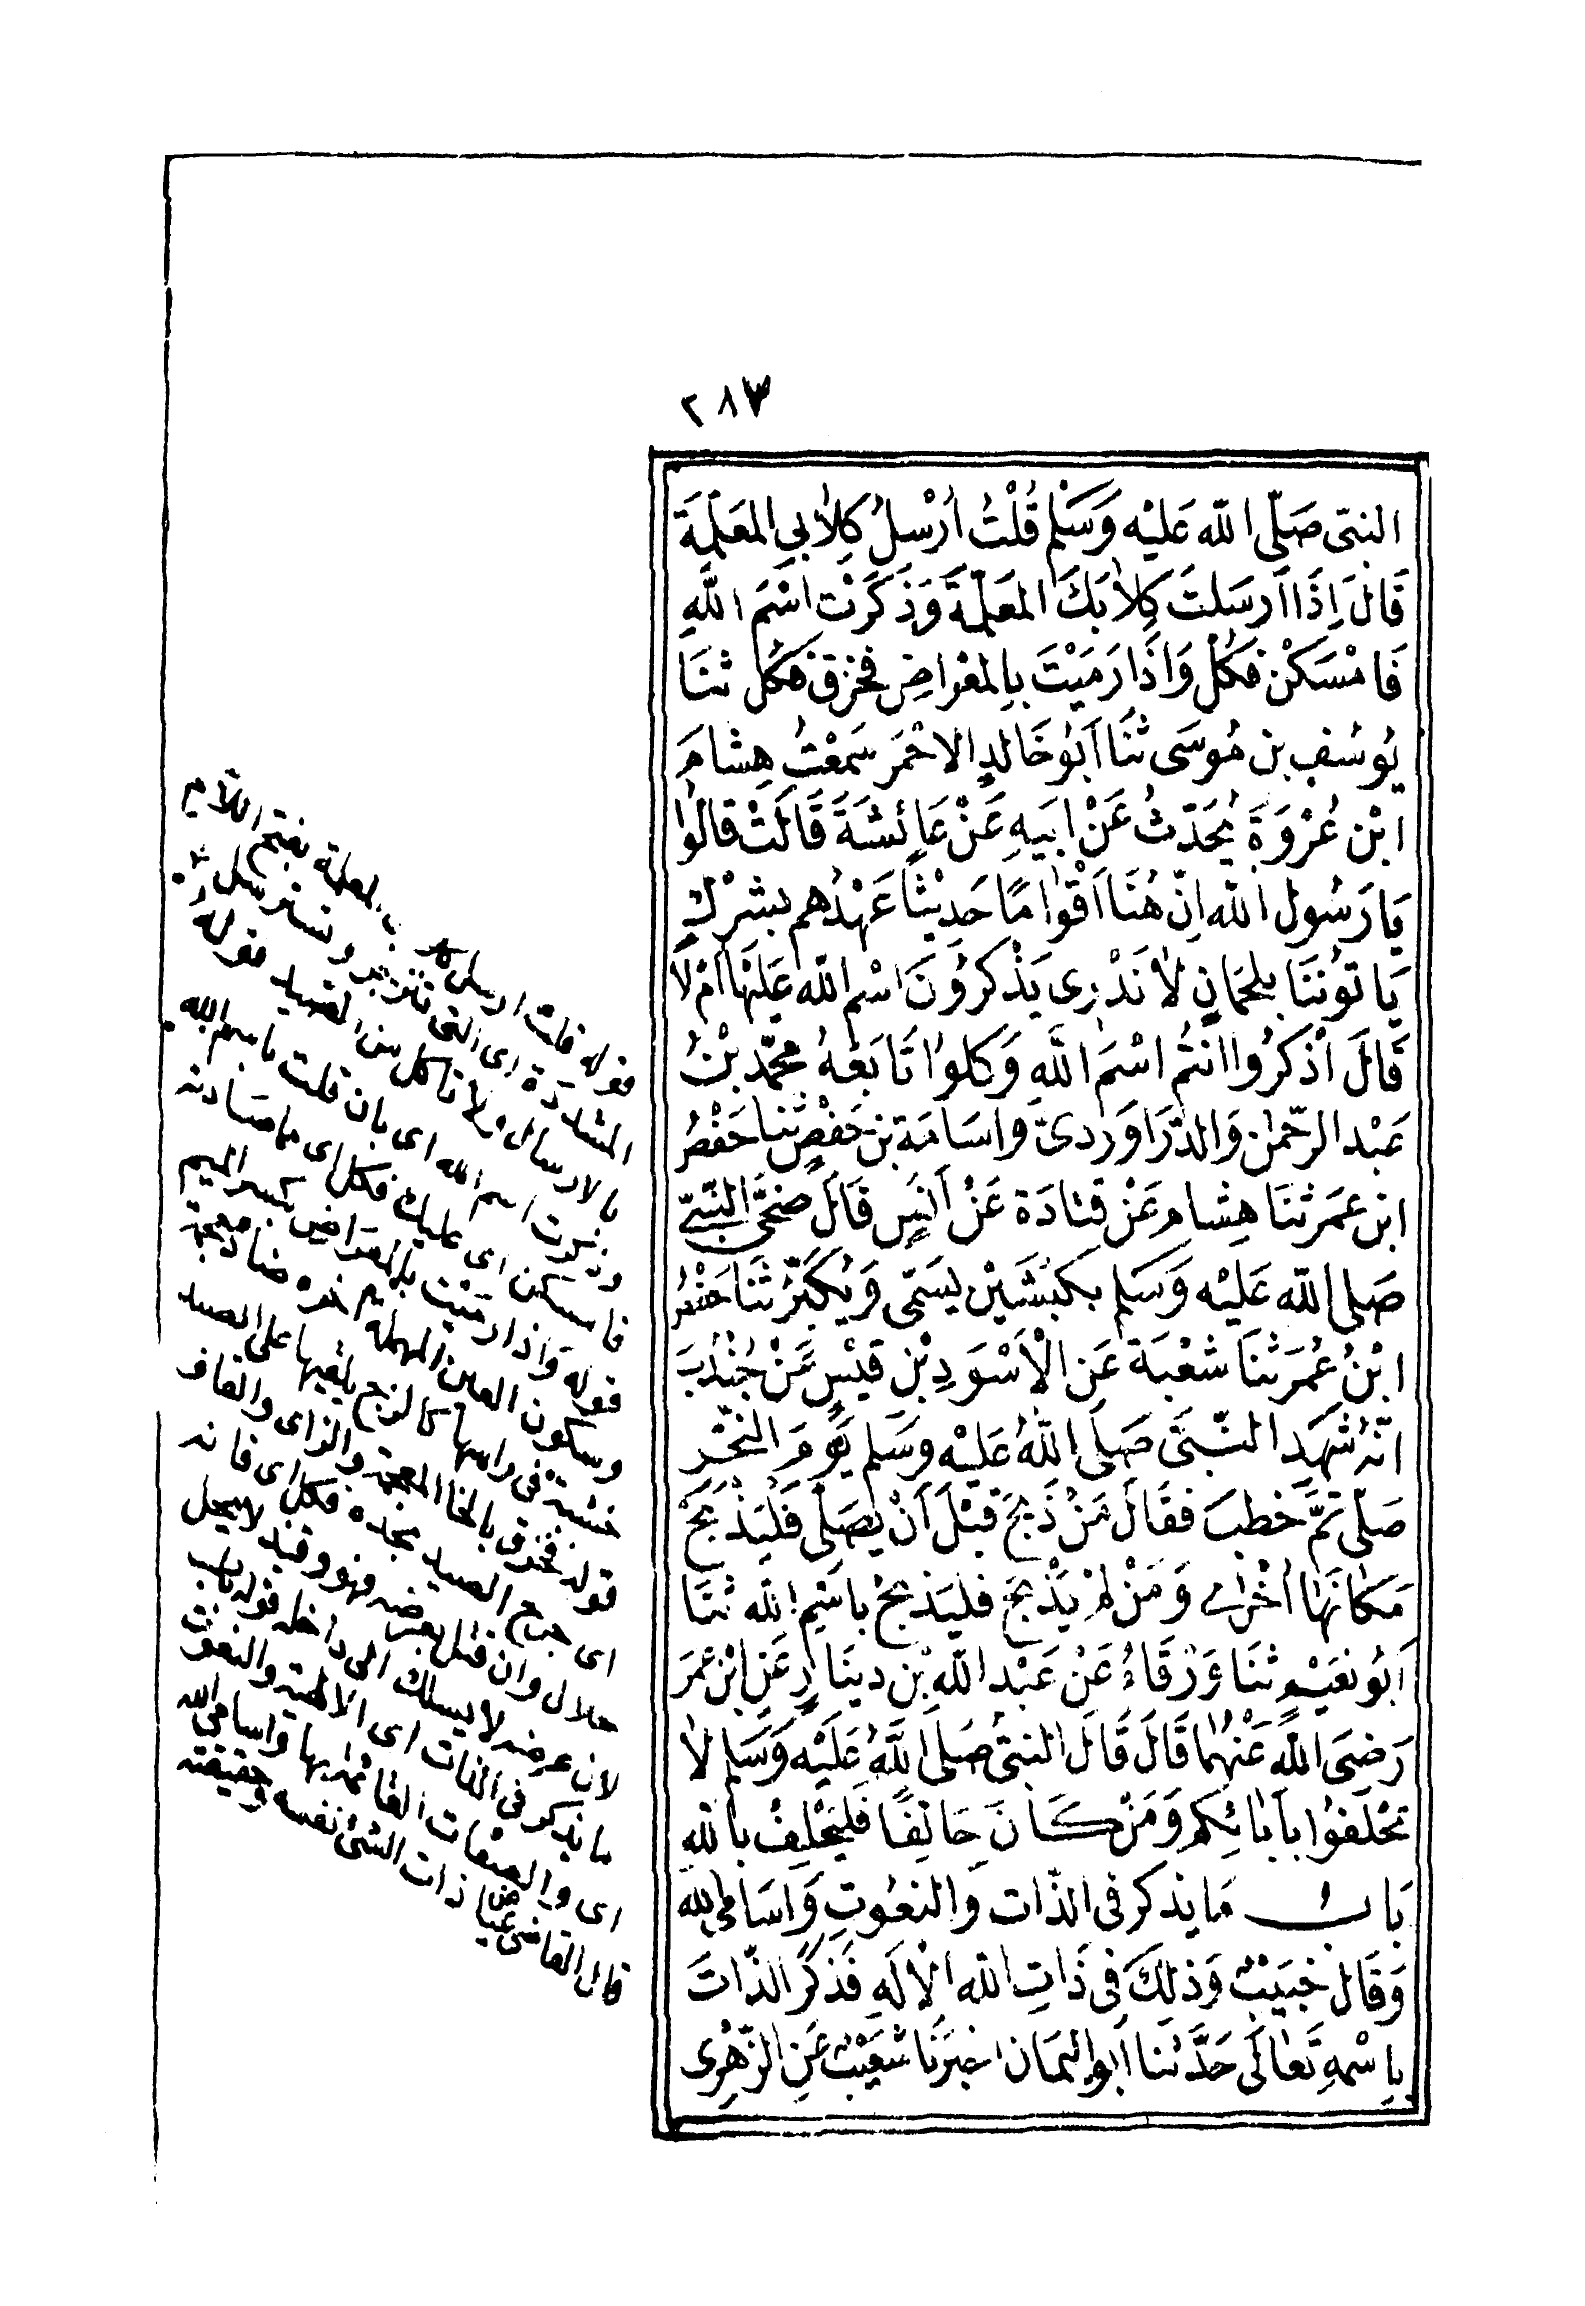 ٢٨٣
النبى صَلّى الله عَليْه وَسَلم قُلْتُ اُرْسِلُ كِلاَبِى المعَلّمَةَ
قَالَ اِذَا اَرسَلتَ كِلاَبَكَ المعَلّمةَ وَذَكَرْت اسْمَ اللهِ
فَامْسَكْنَ فكُلْ وَاذَا رَمَيْتَ بِالمعْرَاضِ فخزق فكُل ثنَا
يُوسُف بن مُوسَى ثنَا اَبُو خَالدٍ الاحْمَر سَمعْتُ هِشامَ
ابْن عُرْوَةَ يُحَدّثُ عَنْ ابَيهِ عَنْ عَائشَةَ قَالتْ قالُوا
يَا رَسُول الله اِنّ هُنَا اَقْوامًا حَديْثًا عَهْدُهم بشرْكٍ
يَاتُونَنَا بلحْمَانٍ لاَ نَدْرِى يَذْكرُونَ اسْم الله عَليْهَا اَمْ لَا
قَالَ اذْكرُوا انتُم اسْمَ اللهِ وَكلوُا تَابَعَهُ محمّد بْنُ
عَبْد الرّحمٰن وَالدّرَاوَردىّ واسَامَة بن حَفْصٍ ثنا حَفْصُ
ابن عمَر ثنَا هِشام عَنْ قتادَة عَنْ اَنَسٍ قَالَ ضَحَّى النّبىّ
صَلى الله عَليْه وَسَلم بكبْشَيْن يسَمّى وَيُكبّرُ ثَنَا حَفْصُ
ابْنُ عُمَر ثنَا شعْبَة عَن الْاَسْوَدِ بْن قَيْسٍ عَنْ جُنْدُبَ
انّهُ شَهدَ النّبىَّ صَلى اللهُ عَليْه وسَلم يَوْمَ النّحْر
صَلّى ثمَّ خَطبَ فقَالَ مَنْ ذَبَحَ قبْلَ اَنْ يُصَلّى فَليَذْبَحْ
مَكانَهَا اُخْرٰى وَمَنْ لمْ يَذْبَحْ فليَذْبحْ باسْمِ الله ثنَا
اَبُو نعَيْمٍ ثنَا وَرْقَاءُ عَنْ عَبْد الله بْن دينَارٍ عَنِ ابْن عمَر
رَضىَ اللهُ عَنْهُمَا قَالَ قَالَ النبىُّ صَلى اللهُ عَليْه وَسَلم لاَ
تحْلفُوا بآبَائكم وَمَنْ كَانَ حَالفًا فَليَحْلِفْ باللهِ
بَابُ مَا يذكر فى الذّات وَالنعُوتِ وَاسَامِى الله
وَقَال خبَيْبٌ وَذلِكَ فى ذَاتِ الله الْاِلَهِ فَذكَرَ الذّاتَ
بِاسْمِهِ تَعَالَى حَدَّثنا اَبُو اليمَان اخبرَنَا شعَيْبٌ عَنِ الزّهْرى
قوله قلت ارسل كلابى المعلمة بفتح اللام
المشددة اى التى تنزجر وتسترسل
بالارسال ولا تاكل من الصيد قوله
وذكرت اسم الله اى بان قلت باسم الله
فامسكن اى عليك فكل اى ما صادته
قوله واذا رميت بالمعراض بكسر الميم
وسكون العين المهملة اخره ضاد معجمة
خشبة فى راسها كالزج يلقيها على الصيد
قوله فخزق بالخا المعجمة والزاى والقاف
اى جرح الصيد بحده فكل اى فانه
حلال وان قتل بعرضه فهو وقيذ لا يحل
لان عرضه لا يسلك الى داخله قوله باب
ما يذكر فى الذات اى الالهية والنعوت
اى والصفات القائمة بها واسامى الله
قال القاضى عياض ذات الشئ نفسه وحقيقته